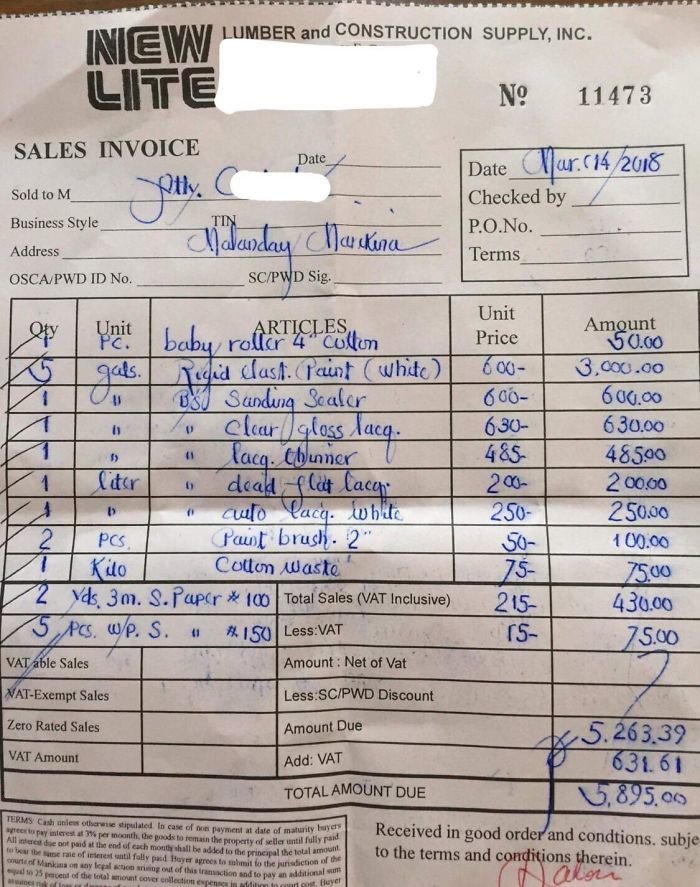 NEW LITE LUMBER and CONSTRUCTION SUPPLY, INC.
Nº 11473
SALES INVOICE
Date
Sold to M Jtty. C
Business Style TIN
Address Malanday Marikina
OSCA/PWD ID No. SC/PWD Sig.
Date Mar. 14/2018
Checked by
P.O.No.
Terms
Qty Unit ARTICLES Unit Price Amount
1 Pc. baby roller 4" cotton 50.00
5 gals. Rigid elast. Paint (white) 600- 3,000.00
1 " BSJ Sanding Sealer 600- 600.00
1 " " Clear gloss lacq. 630- 630.00
1 " " lacq. thinner 485- 485.00
1 liter " dead flat lacq. 200- 200.00
1 " " auto lacq. white 250- 250.00
2 pcs. Paint brush. 2" 50- 100.00
1 Kilo Cotton waste 75- 75.00
2 yds. 3m. S. Paper # 100 Total Sales (VAT Inclusive) 215- 430.00
5 pcs. w/p. S. " #150 Less:VAT 15- 75.00
VATable Sales Amount : Net of Vat
VAT-Exempt Sales Less:SC/PWD Discount
Zero Rated Sales Amount Due 5,263.39
VAT Amount Add: VAT 631.61
TOTAL AMOUNT DUE 5,895.00
TERMS: Cash unless otherwise stipulated. In case of non payment at date of maturity buyers
agrees to pay interest at 3% per moonth, the goods to remain the property of seller until fully paid.
All interest due not paid at the end of each month shall be added to the principal the total amount.
to bear the same rate of interest until fully paid. Buyer agrees to submit to the jurisdiction of the
courts of Marikina on any legal action arising out of this transaction and to pay an additional sum
equal to 25 percent of the total amount cover collection expenses in addition to court cost. Buyer
assumes risk of loss
Received in good order and condtions. subje
to the terms and conditions therein.